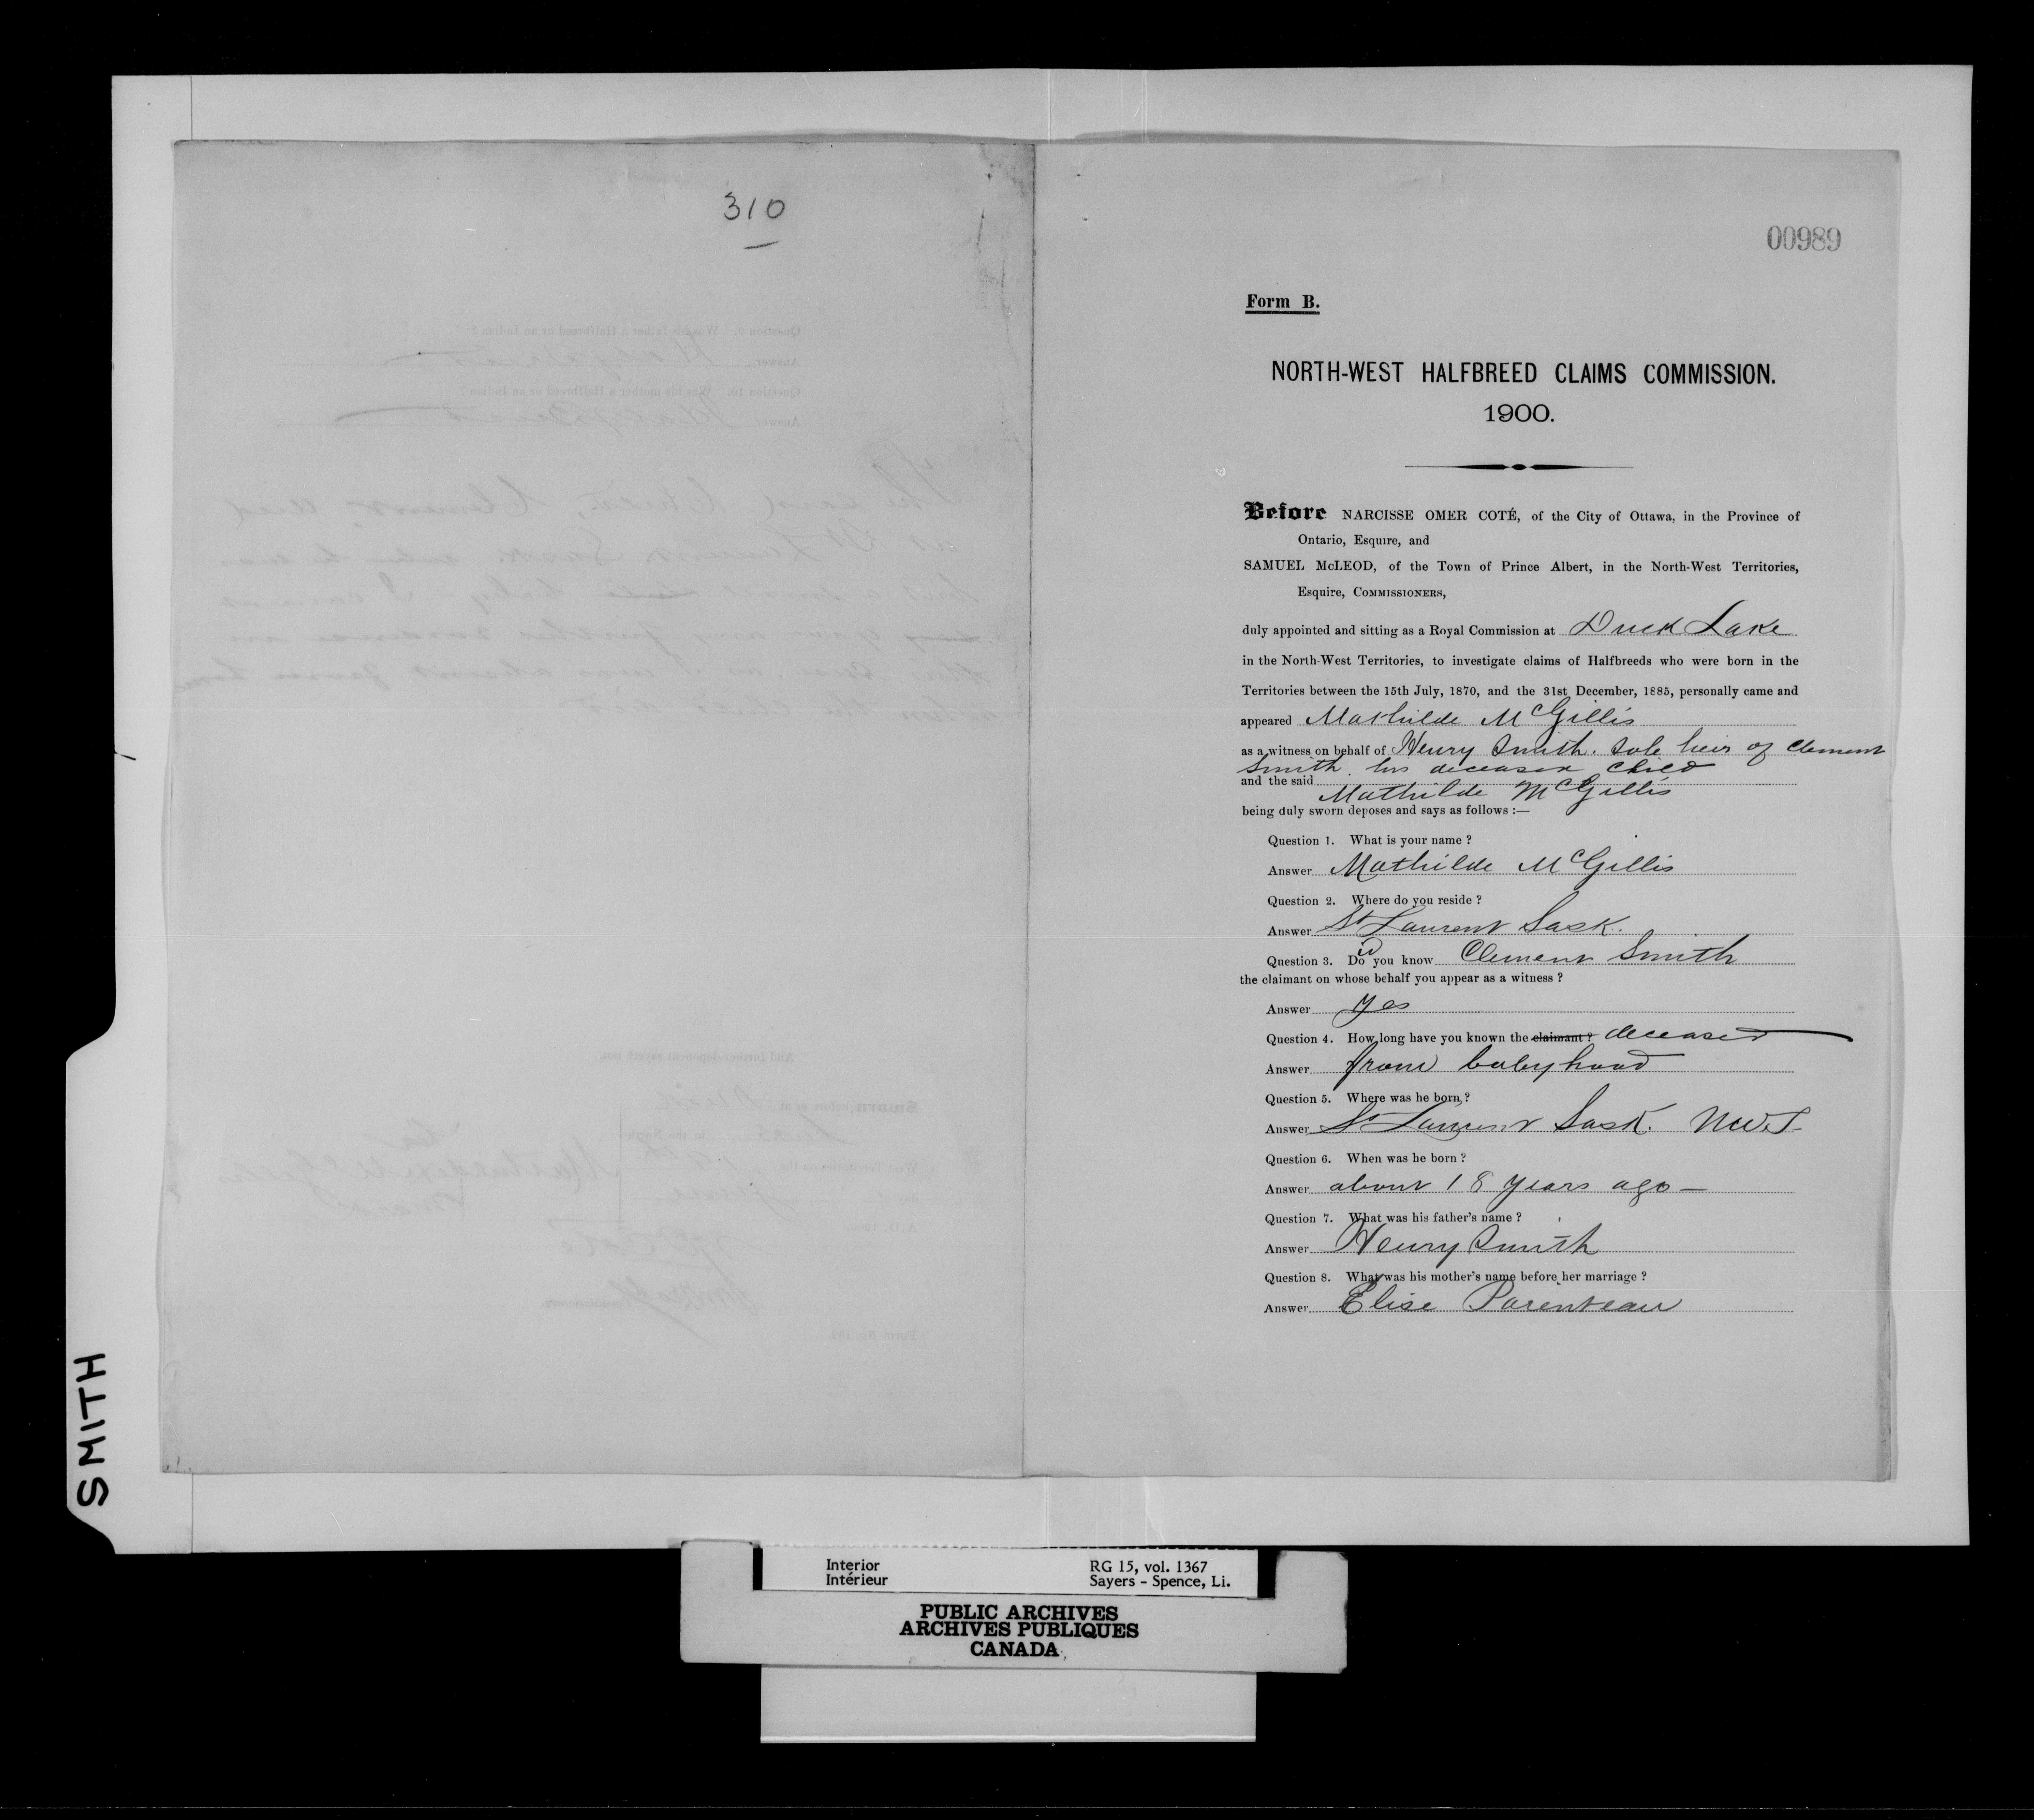 310
00989
Form B.
NORTH-WEST HALFBREED CLAIMS COMMISSION.
1900.
Before NARCISSE OMER COTÉ, of the City of Ottawa, in the Province of
Ontario, Esquire, and
SAMUEL McLEOD, of the Town of Prince Albert, in the North-West Territories,
Esquire, COMMISSIONERS,
duly appointed and sitting as a Royal Commission at Duck Lake
in the North-West Territories, to investigate claims of Halfbreeds who were born in the
Territories between the 15th July, 1870, and the 31st December, 1885, personally came and
appeared Mathilde McGillis
as a witness on behalf of Henry Smith. Sole heir of Clement
Smith. his deceased child
and the said
Mathilde McGillis
being duly sworn deposes and says as follows :—
Question 1. What is your name ?
Answer Mathilde McGillis
Question 2. Where do you reside ?
Answer St Laurent Sask.
Question 3. Do id you know Clement Smith
the claimant on whose behalf you appear as a witness ?
Answer yes
Question 4. How long have you known the claimant ? deceased
Answer from babyhood
Question 5. Where was he born ?
Answer St Laurent Sask. NWT
Question 6. When was he born ?
Answer about 18 years ago —
Question 7. What was his father's name ?
Answer Henry Smith
Question 8. What was his mother's name before her marriage ?
Answer Elise Parenteau
SMITH
Interior
Intérieur
RG 15, vol. 1367
Sayers - Spence, Li.
PUBLIC ARCHIVES
ARCHIVES PUBLIQUES
CANADA